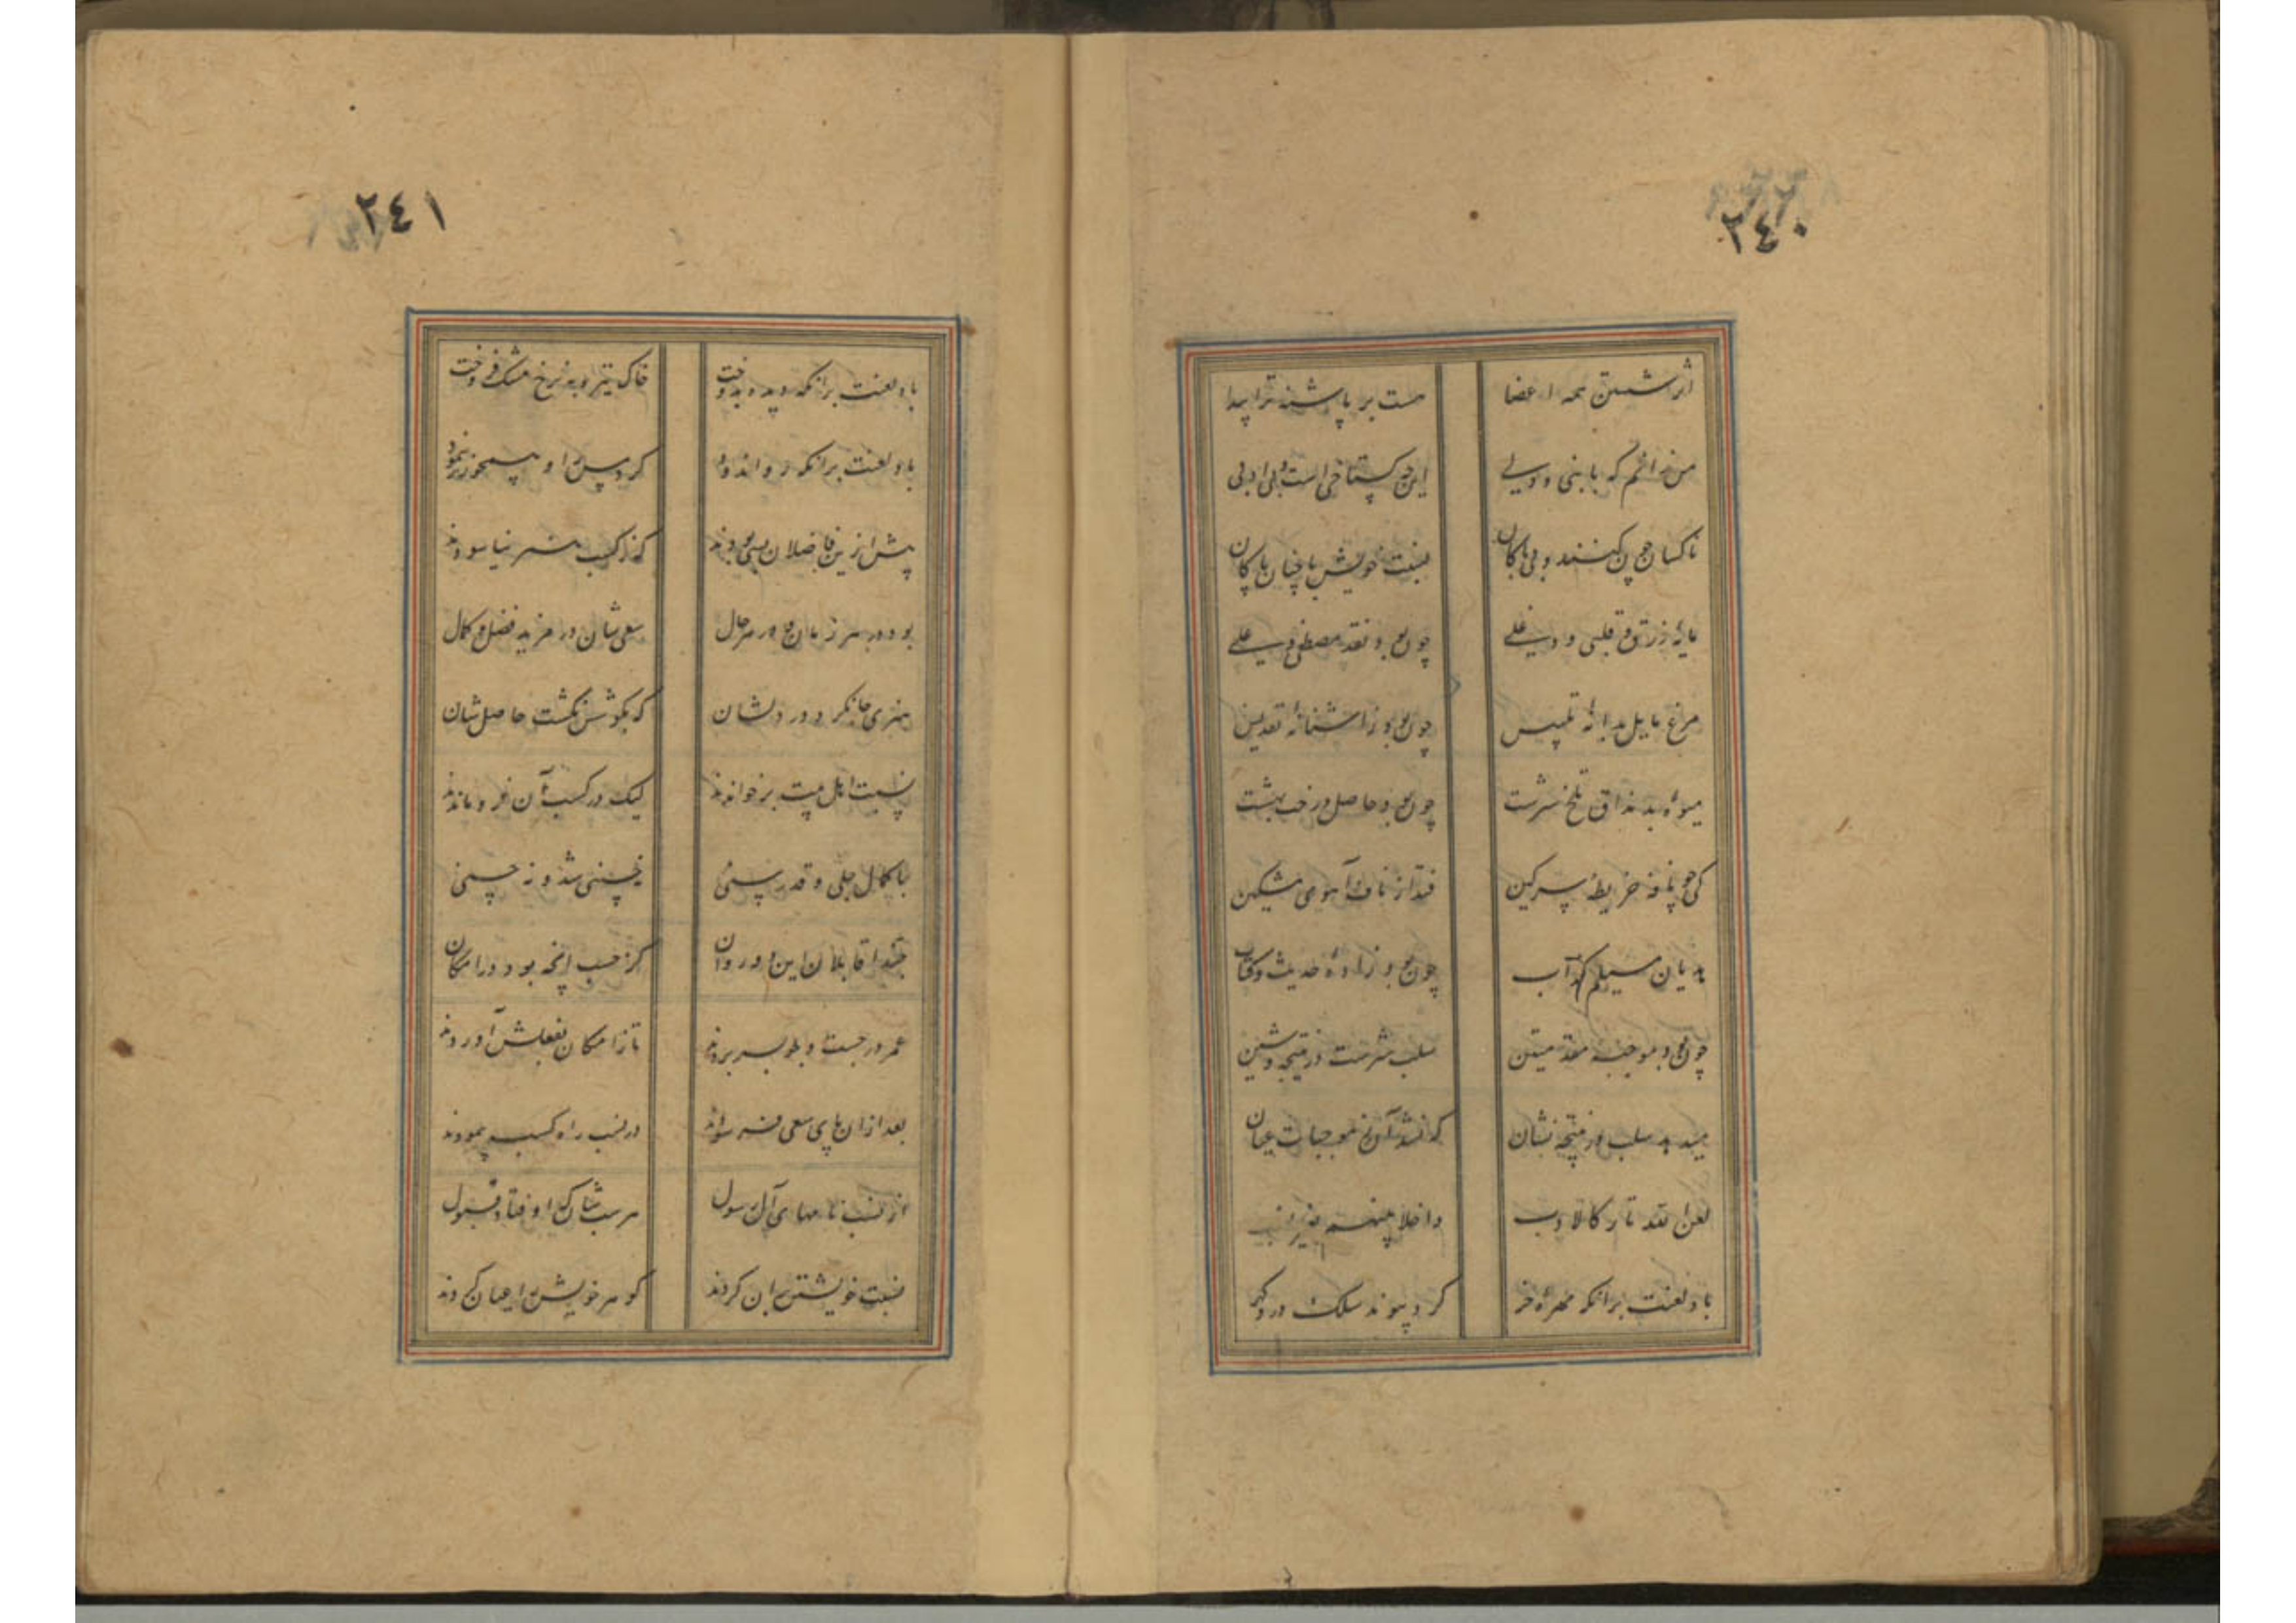 ٢٤٠
اثر شستن همه اعضا هست بر پاشنه ترا پیدا
من ندانم که با بنی و ولی این چه گستاخی است و بی ادبی
ناکسان چون کنند و بی باکان نسبت خویش با چنان پاکان
مایهٔ زرق و قلبی و دغلی چون بود نقد مصطفی و علی
مرغ مایل بدانهٔ تلبیس چون بود ز آشیانهٔ تقدیس
میوهٔ بد مذاق تلخ سرشت چون بود حاصل درخت بهشت
کی چو نافه خریطهٔ سرگین فتد از ناف آهوی مشکین
هذیان مسیلمهٔ کذاب چون بود زادهٔ حدیث و کتاب
چون بود موجبه مقدمتین سلب شرست در نتیجه و شین
میدهد سلب در نتیجه نشان که نشد آن ز موجبات عیان
لعن الله تارکا لاب داخلا بینهم بغیر نسب
باد لعنت بر آنکه مهرهٔ خر کرد پیوند سلک در و گهر
٢٤١
باد لعنت بر آنکه دیده بدوخت خاک تیره به نرخ مشک فروخت
باد لعنت بر آنکه زر اندود کرد مس را و همچو زر بنمود
پیش ازین فاضلان بسی بودند که ز کسب هنر نیاسودند
بود در هر زمان و در هر حال سعی شان در مزید فضل و کمال
هنری جا نکرد در دلشان که بکوشش نگشت حاصل شان
نسبت اهل بیت بر خواندند لیک در کسب آن فرو ماندند
با کمال جلی و قدر سنی نه حسینی شد و نه حسنی
حبذا قابلان این دوران کز حسب آنچه بود در امکان
عمر در جست و جو بسر بردند تا ز امکان بفعلش آوردند
بعد از ان پای سعی فرسودند در نسب راه کسب پیمودند
از نسب نامهای آل رسول هر یک شان که اوفتاد قبول
نسبت خویشتن بدان کردند گوهر خویش را عیان کردند